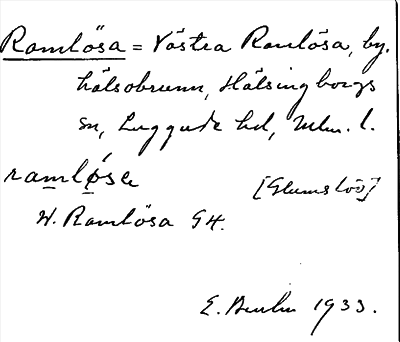 Ramlösa = Västra Ramlösa, by,
hälsobrunn, Hälsingborgs
sn, Luggude hd, Mlm. l.
ramlǿsa
[Glumslöv]
V. Ramlösa GK.
E. 1933.